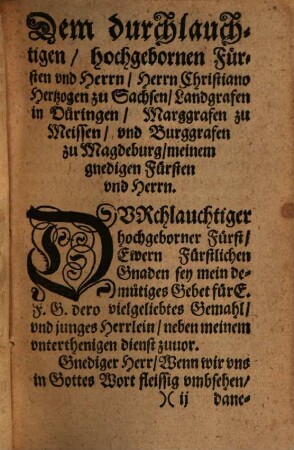 Dem durchlauch-
tigen / hochgebornen Für-
sten vnd Herrn / Herrn Christiano
Hertzogen zu Sachsen / Landgrafen
in Düringen / Marggrafen zu
Meissen / vnd Burggrafen
zu Magdeburg / meinem
gnedigen Fürsten
vnd Herrn.
DVRchlauchtiger
hochgeborner Fürst /
Ewern Fürstlichen
Gnaden sey mein de-
mütiges Gebet für E.
F. G. dero vielgeliebtes Gemahl /
vnd junges Herrlein / neben meinem
vnterthenigen dienst zuuor.
Gnediger Herr / Wenn wir vns
in Gottes Wort fleissig vmbsehen /
)( ij dane-